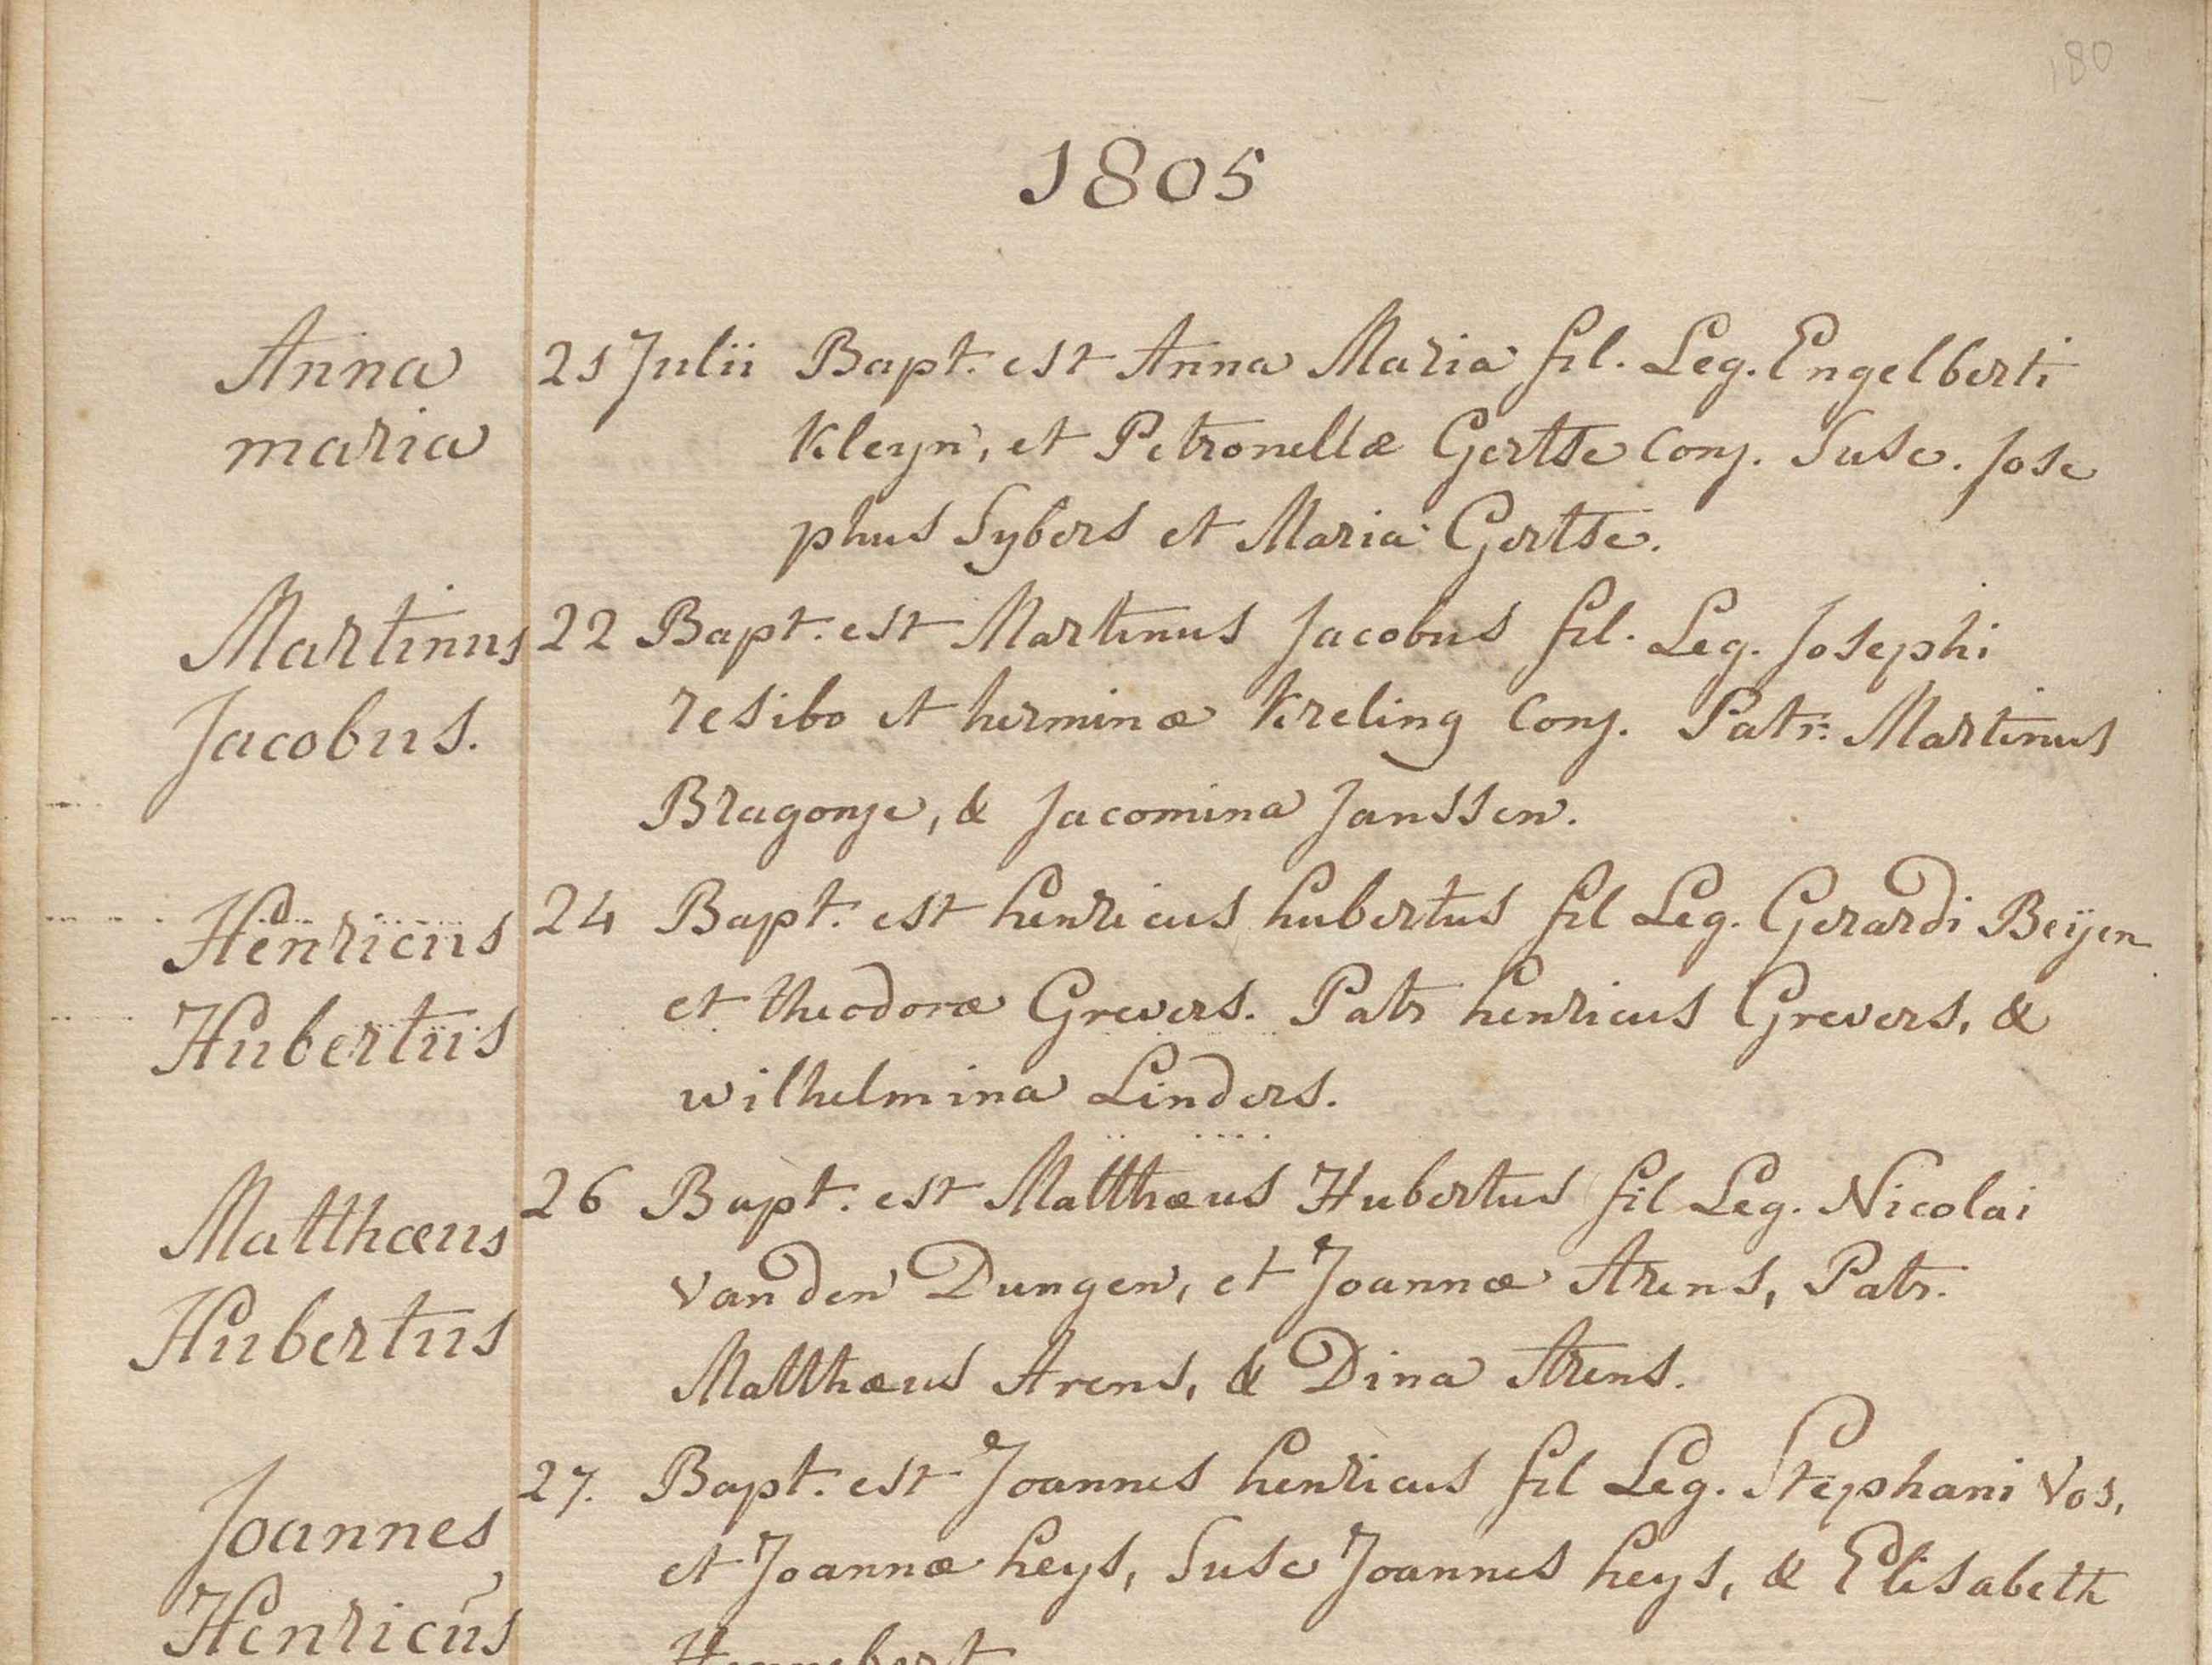 180
1805
Anna
maria
21 Julii Bapt. est Anna Maria fil. Leg. Engelberti
Kleyn, et Petronellæ Gertse Conj. Susc. Jose
phus Sybers et Maria Gertse.
Martinus
Jacobus.
22 Bapt. est Martinus Jacobus fil. Leg. Josephi
resibo et herminæ Kreling Conj. Patr: Martinus
Bragonje, & Jacomina Janssen.
Henricus
Hubertus
24 Bapt. est henricus hubertus fil Leg. Gerardi Beijen
et theodoræ Grevers. Patr henricus Grevers, &
wilhelmina Linders.
Matthæus
Hubertus
26 Bapt. est Matthæus Hubertus fil Leg. Nicolai
van den Dungen, et Joannæ Arens, Patr.
Matthæus Arens, & Dina Arens.
Joannes
Henricus
27. Bapt. est Joannes henricus fil Leg. Stephani Vos,
et Joannæ heys, Susc Joannes heys, & Elisabeth